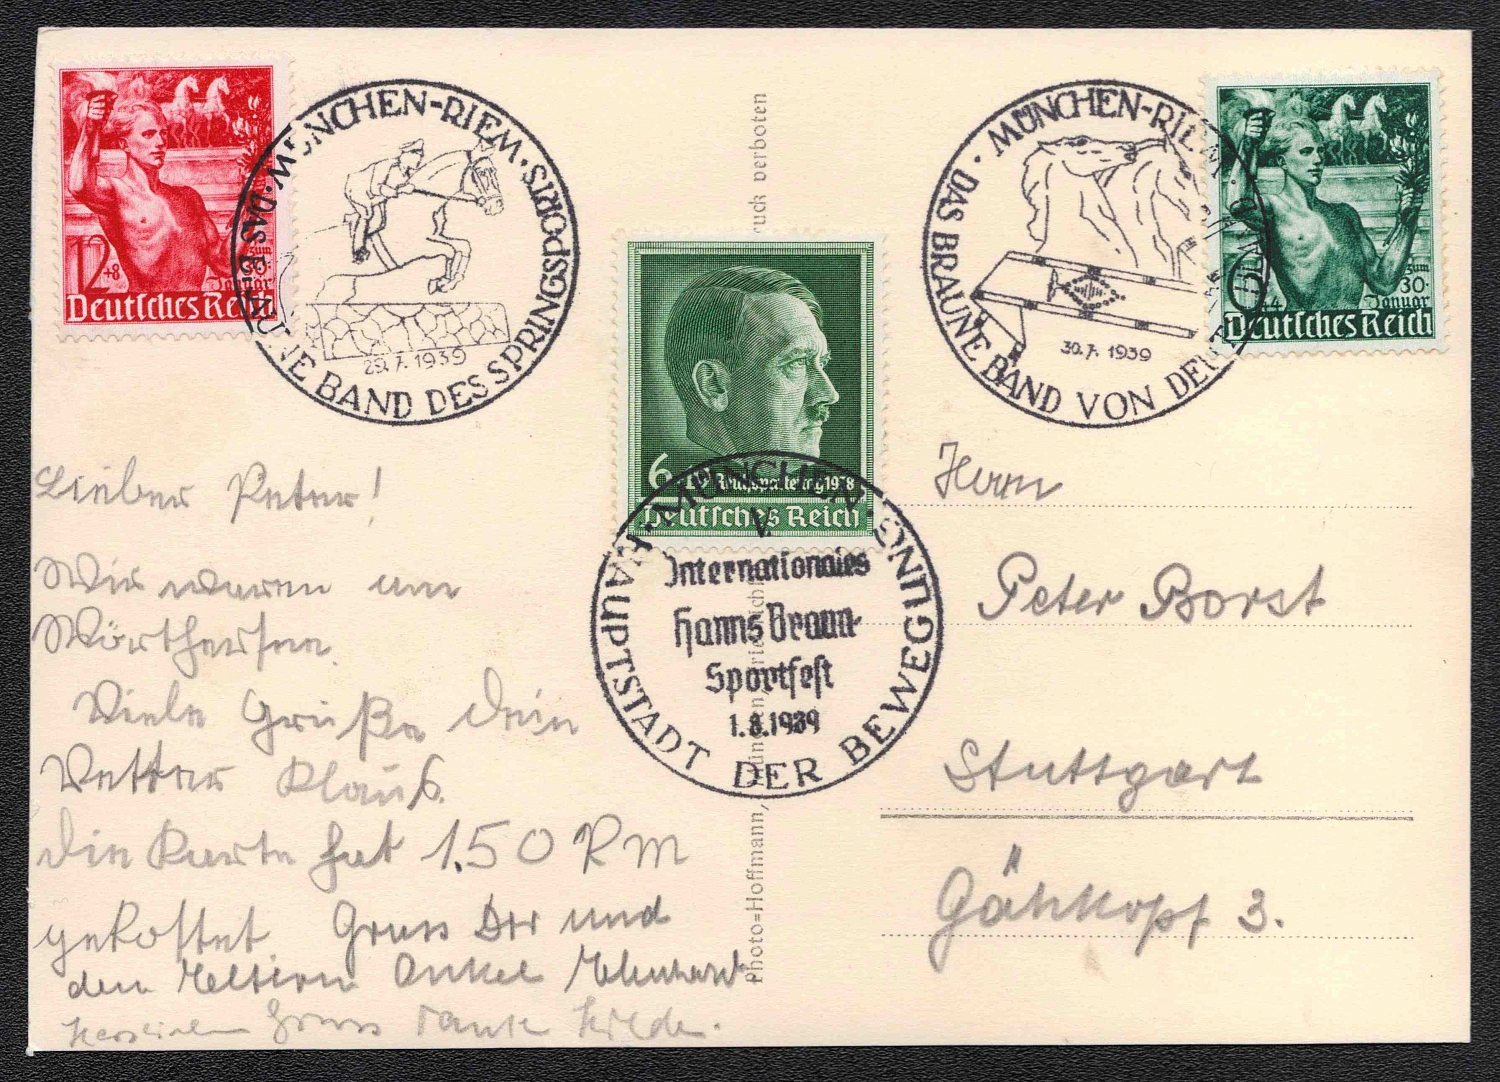 12+8
zum
30.
Januar
Deutsches Reich
MÜNCHEN-RIEM · DAS BRAUNE BAND DES SPRINGSPORTS ·
29.7.1939
MÜNCHEN-RIEM · DAS BRAUNE BAND VON DEUTSCHLAND ·
30.7.1939
zum
30.
Januar
Deutsches Reich
6
Reichsparteitag 1938
Deutsches Reich
MÜNCHEN · HAUPTSTADT DER BEWEGUNG ·
V.
Internationales
Hanns Braun-
Sportfest
1.8.1939
Photo=Hoffmann, München
druck verboten
Lieber Peter!
Wir waren am
Wörthersee.
Viele Grüße Dein
Vetter Klaus.
Die Karte hat 1.50 RM
gekostet. Gruss Dir und
den Eltern Onkel
Gruss Tante Hilde.
Herrn
Peter Borst
Stuttgart
Gähkopf 3.